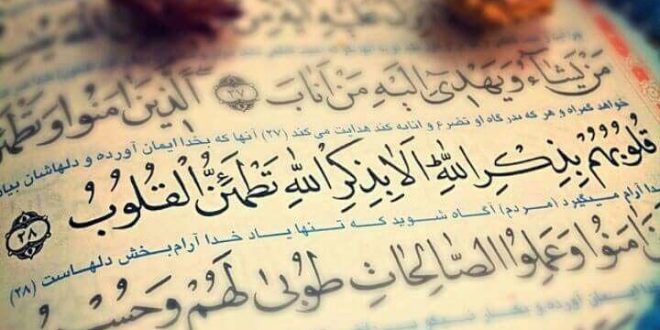 مَنْ يَشَآءُ وَيَهْدِىٓ اِلَيْهِ مَنْ اَنَابَ ﴿٢٧﴾ اَلَّذِينَ اٰمَنُوا وَتَطْمَئِنُّ
خواهد گمراه و هر که بدرگاه او تضرع و انابه کند هدایت می کند (۲۷) آنها که بخدا ایمان آورده و دلهاشان بیاد
قُلُوبُهُمْ بِذِكْرِ اللّٰهِ اَلَا بِذِكْرِ اللّٰهِ تَطْمَئِنُّ الْقُلُوبُ ﴿٢٨﴾
خدا آرام میگیرد (مردم) آگاه شوید که تنها یاد خدا آرام‌بخش دلهاست (۲۸)
اٰمَنُوا وَعَمِلُوا الصَّالِحَاتِ طُوبٰى لَهُمْ وَحُسْنُ